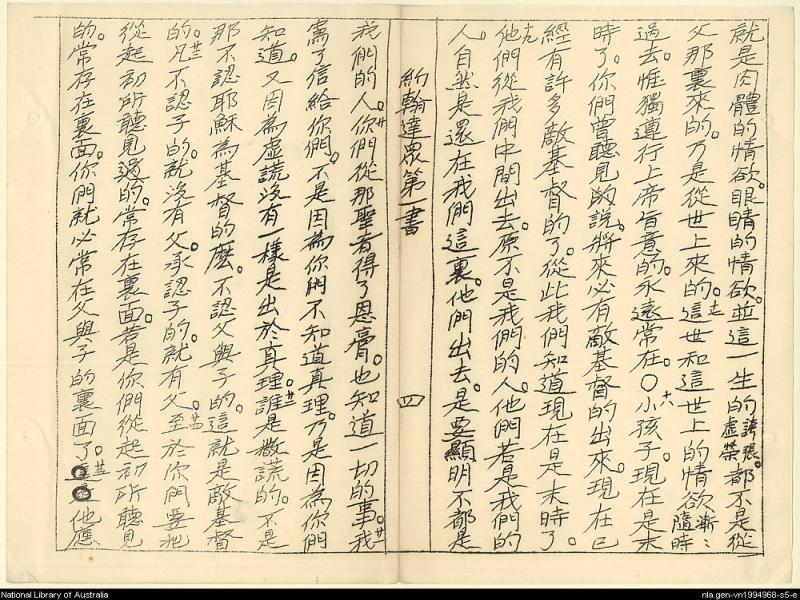 就是肉體的情欲。眼睛的情欲。並這一生的誇張。虛榮都不是從
父那裏來的。乃是從世上來的。十七這世和這世上的情欲漸漸隨時
過去。惟獨遵行上帝旨意的。永遠常在。〇十八小孩子。現在是末
時了。你們曾聽見的說。將來必有敵基督的出來。現在已
經有許多敵基督的了。從此我們知道現在是末時了。
十九他們從我們中間出去。原不是我們的人。他們若是我們的
人。自然是還在我們這裏。他們出去。是要顯明不都是
約翰達眾第一書
四
我們的人。二十你們從那聖者得了恩膏。也知道一切的事。廿一我
寫了信給你們。不是因為你們不知道真理。乃是因為你們
知道。又因為虛謊沒有一樣是出於真理。廿二誰是撒謊的。不是
那不認耶穌為基督的麽。不認父與子的。這就是敵基督
的。廿三凡不認子的。就沒有父。承認子的。就有父。廿四至於你們要把
從起初所聽見過的。常存在裏面。若是你們從起初所聽見
的。常存在裏面。你們就必常在父與子的裏面了。廿五 他應
National Library of Australia
nla.gen-vn1994968-s5-e